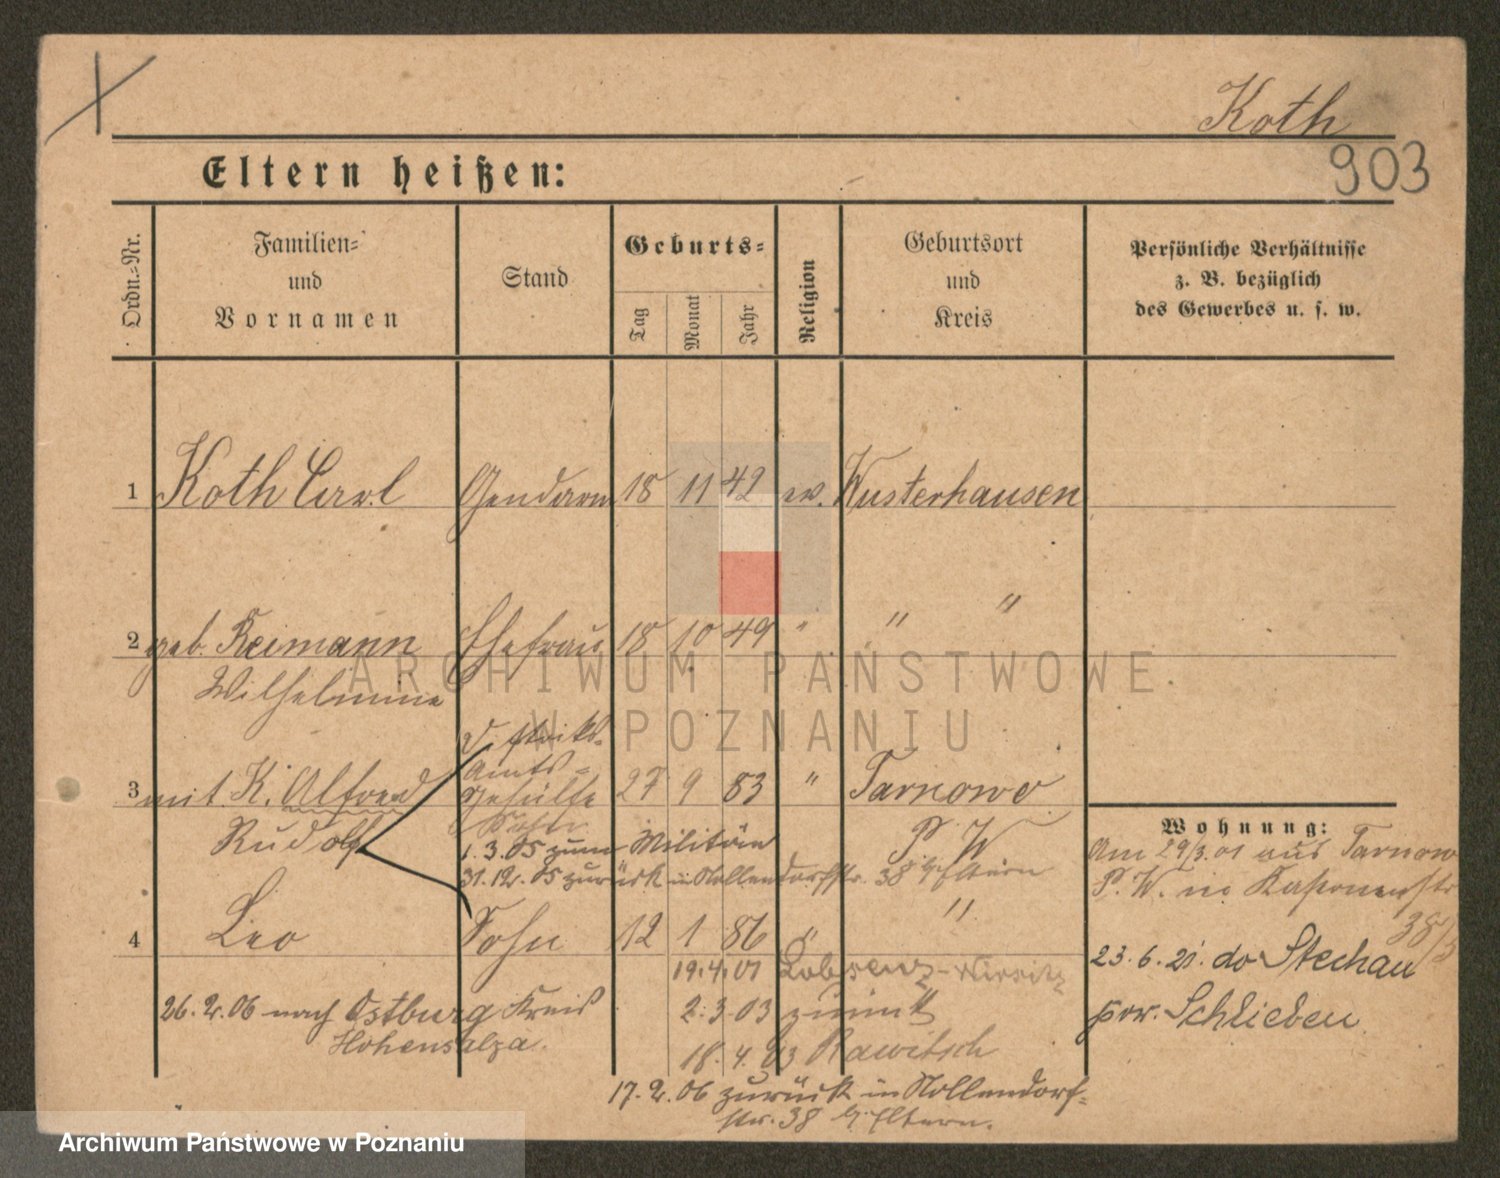 Koth
903
Eltern heißen:
Ordn.-Nr.
Familien-
und
Vornamen
Stand
Geburts-
Tag
Monat
Jahr
Religion
Geburtsort
und
Kreis
Persönliche Verhältnisse
z. B. bezüglich
des Gewerbes u. s. w.
1 Koth Carl Gendarm 18 11 42 ev. Wusterhausen
2 geb. Reimann Ehefrau 18 10 49 " " "
Wilhelmine
Distrikts-
Amts-
3 mit K. Alfred Gehülfe 27 9 83 " Tarnowo
Rudolf
P. W
1.3.05 zum Militär
31.12.05 zurück in Nollendorfstr. 38 b/Eltern
Wohnung:
Am 29/3.01 aus Tarnowo
P. W. in Kaponierstr
38/3
4 Leo Sohn 12 1 86 " "
19.4.01 Lobsenz-Wirsitz
23.6.21. do Stechau
26.2.06 nach Ostburg Kreis
Hohensalza.
2.3.03 zurück
pow. Schlieben
18.4.03 Rawitsch
17.2.06 zurück in Nollendorf-
str. 38 b/Eltern.
ARCHIWUM PAŃSTWOWE
W POZNANIU
Archiwum Państwowe w Poznaniu